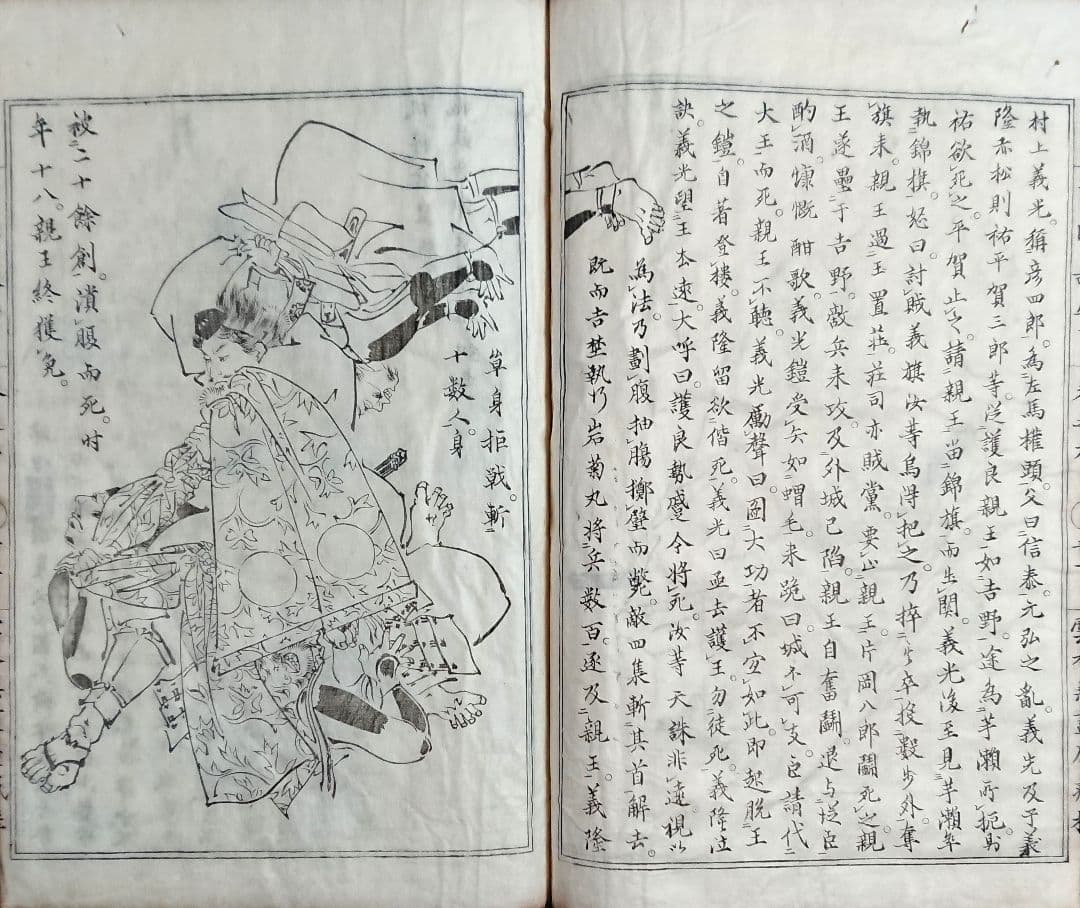 村上義光。稱彦四郎。為左馬権頭。父曰信泰。元弘之亂。義光及子義
隆赤松則祐平賀三郎等。従護良親王如吉野。途為芋瀬所扼。則
祐欲死之。平賀止之。請親王留錦旗。而出関。義光後至見芋瀬卒
執錦旗。怒曰。討賊義旗汝等烏得把之。乃捽其卒投數歩外。奪
旗来。親王過玉置莊。莊司亦賊黨。要山親王。片岡八郎鬪死之。親
王遂壘于吉野。敵兵来攻。及外城已陷。親王自奮鬪。退与従臣
酌酒。慷慨酣歌。義光鎧受矢如蝟毛。来跪曰。城不可支。臣請代
大王而死。親王不聴。義光勵聲曰。図大功者不宜如此。即起脱王
之鎧。自著登樓。義隆留欲偕死。義光曰。亟去護王。勿徒死。義隆泣
訣。義光望王去遠。大呼曰。護良勢蹙今将死。汝等天誅非遠視以
為法。乃劃腹抽腸擲壁而斃。敵四集斬其首解去。
既而吉埜執行岩菊丸将兵数百。逐及親王。義隆
単身拒戦。斬
十数人。身
被二十餘創。潰腹而死。时
年十八。親王終獲免。